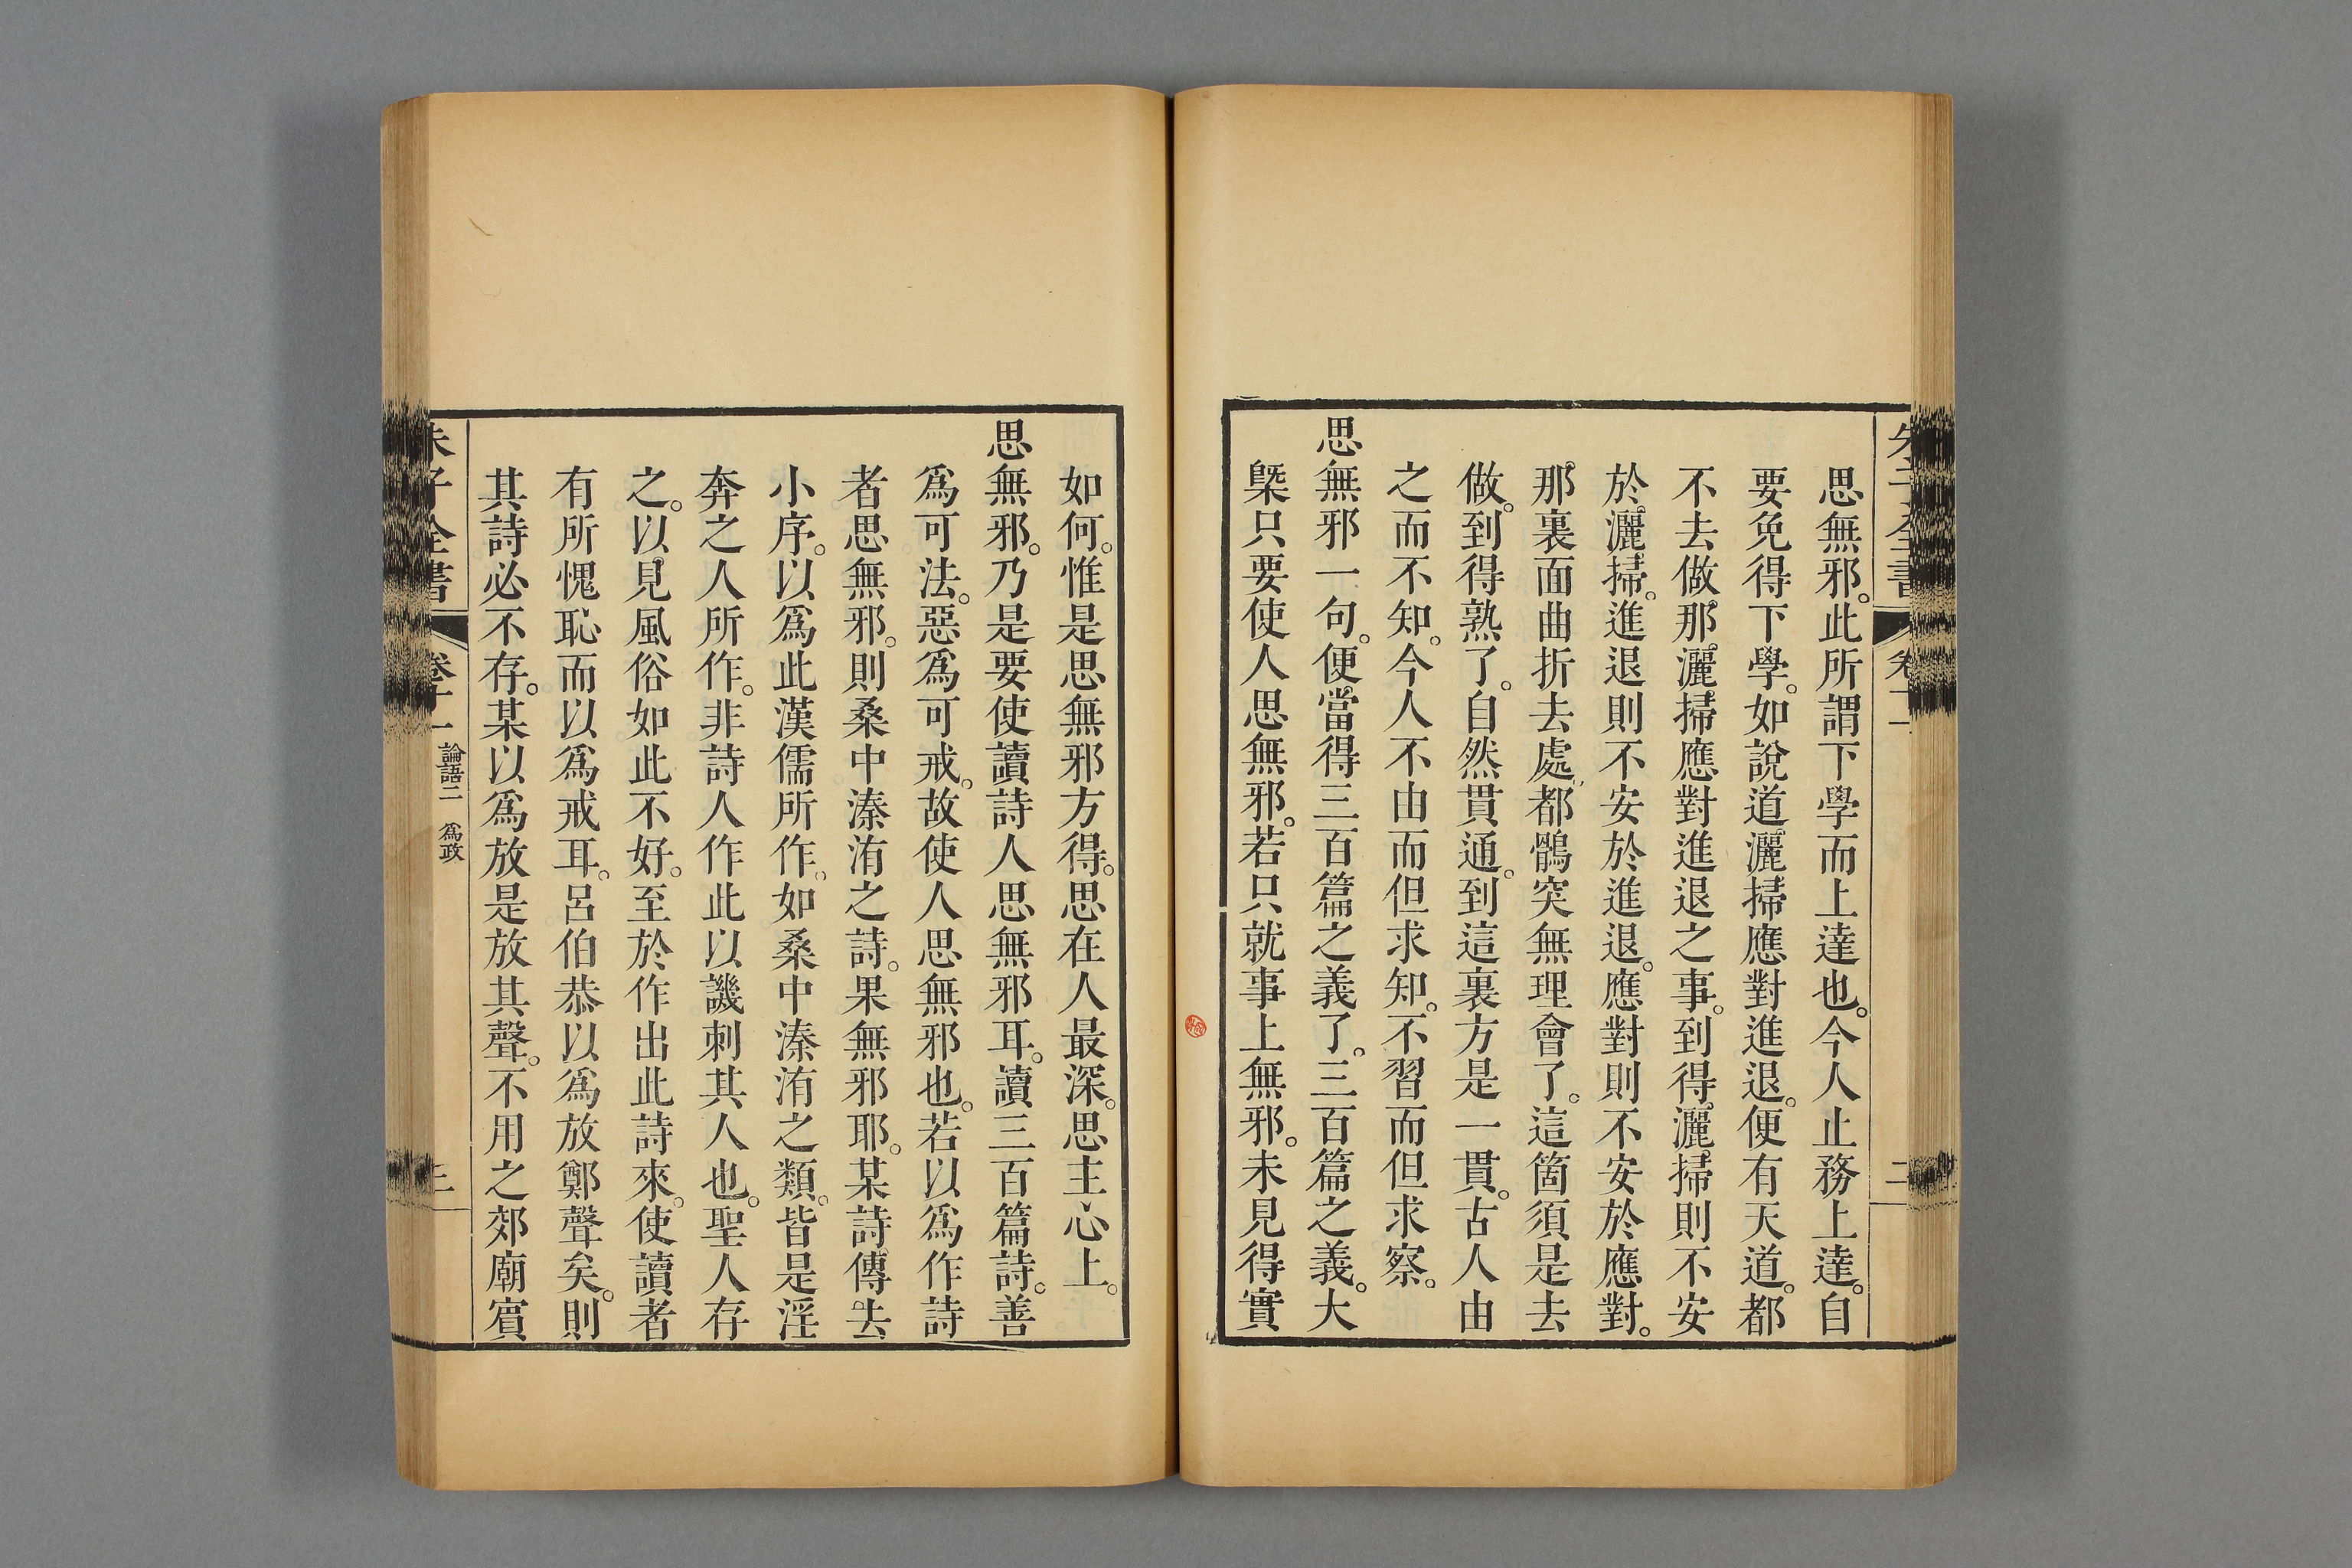 思無邪。此所謂下學而上達也。今人止務上達。自
要免得下學。如說道灑掃應對進退。便有天道。都
不去做那灑掃應對進退之事。到得灑掃則不安
於灑掃。進退則不安於進退。應對則不安於應對。
那裏面曲折去處都鶻突無理會了。這箇須是去
做。到得熟了。自然貫通。到這裏方是一貫。古人由
之而不知。今人不由而但求知。不習而但求察。
思無邪一句。便當得三百篇之義了。三百篇之義。大
槩只要使人思無邪。若只就事上無邪。未見得實
如何。惟是思無邪方得。思在人最深。思主心上。
思無邪。乃是要使讀詩人思無邪耳。讀三百篇詩。善
爲可法。惡爲可戒。故使人思無邪也。若以爲作詩
者思無邪。則桑中溱洧之詩。果無邪耶。某詩傳去
小序。以爲此漢儒所作。如桑中溱洧之類。皆是淫
奔之人所作。非詩人作此以譏刺其人也。聖人存
之。以見風俗如此不好。至於作出此詩來。使讀者
有所愧恥而以爲戒耳。呂伯恭以爲放鄭聲矣。則
其詩必不存。某以爲放是放其聲。不用之郊廟賓
朱子全書
卷十一
論語二 爲政
三